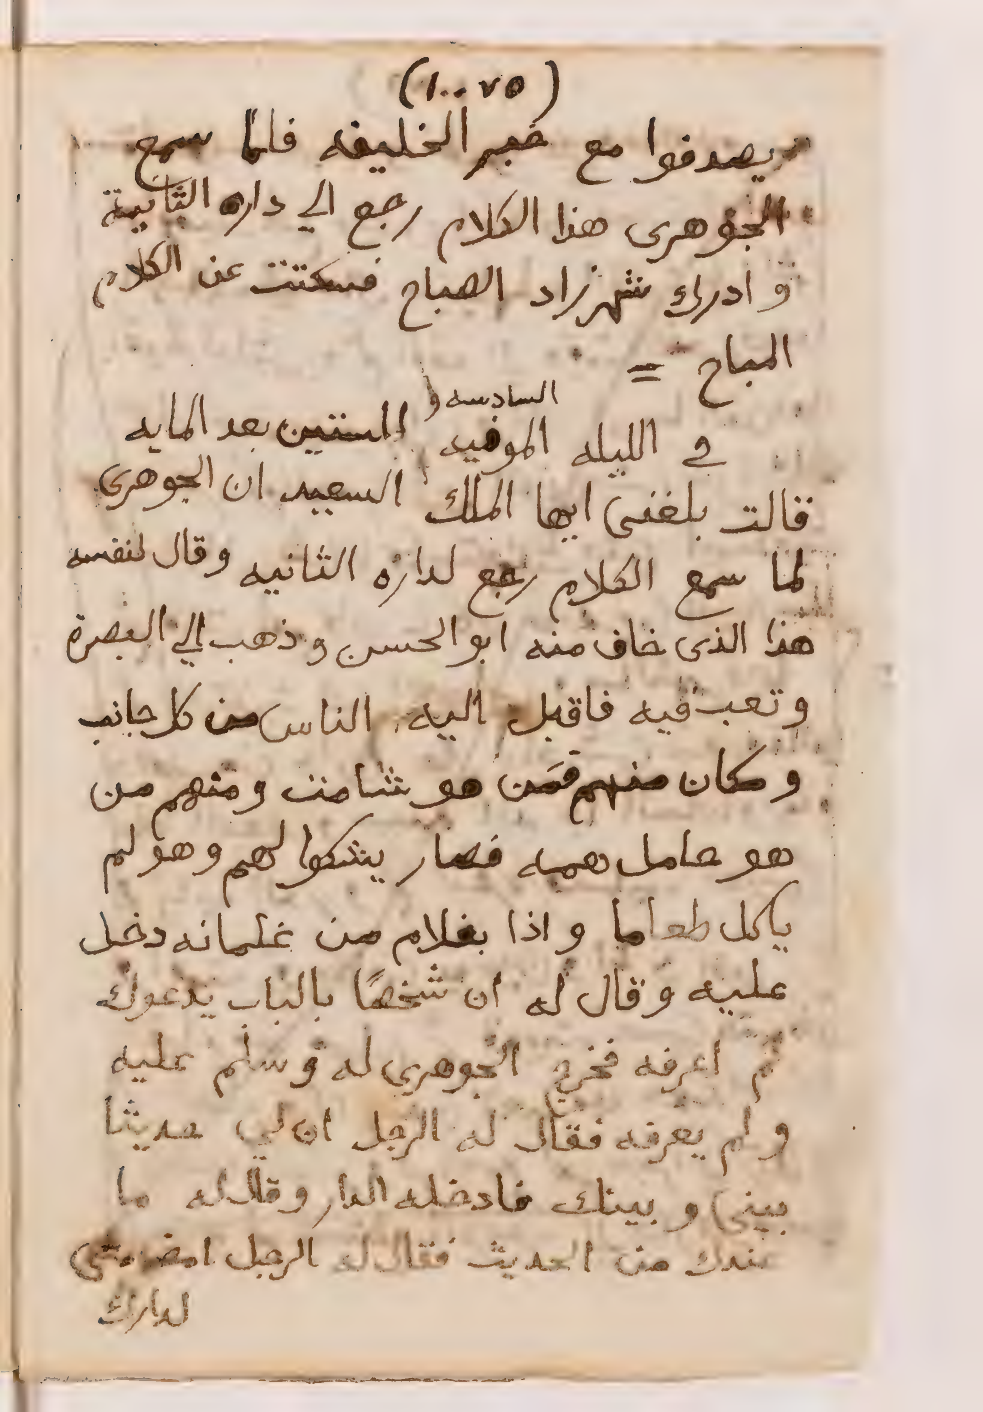 (١٠٠٧٥)
يصدفوا مع خبر الخليفه فلما سمع
الجوهرى هذا الكلام رجع الي داره الثانية
و ادرك شهرزاد الصباح فسكتت عن الكلام
المباح =
السادسه و
في الليله الموفيه الستين بعد المايه
قالت بلغنى ايها الملك السعيد ان الجوهرى
لما سمع الكلام رجع لداره الثانيه وقال لنفسه
هذا الذى خاف منه ابو الحسن و ذهب الي البصرة
و تعب فيه فاقبل اليه الناس من كل جانب
و كان منهم فمن هو شامت ومنهم من
هو حامل همه فصار يشكوا لهم و هو لم
ياكل طعاما و اذا بغلام من غلمانه دخل
عليه و قال له ان شخصًا بالباب يدعوك
لم اعرفه فخرج الجوهري له و سلم عليه
و لم يعرفه فقال له الرجل ان لي حديثا
بينى و بينك فادخله الدار و قال له ما
عندك من الحديث فقال له الرجل امض معي
لدارك